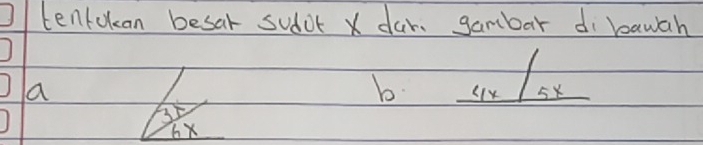 tentukan besar sudut x dari gambar di bawah
a
b.
3x
6x
4x
5x